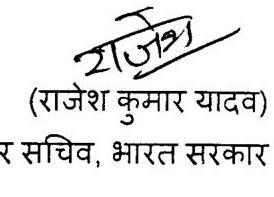 राजेश
(राजेश कुमार यादव)
र सचिव, भारत सरकार